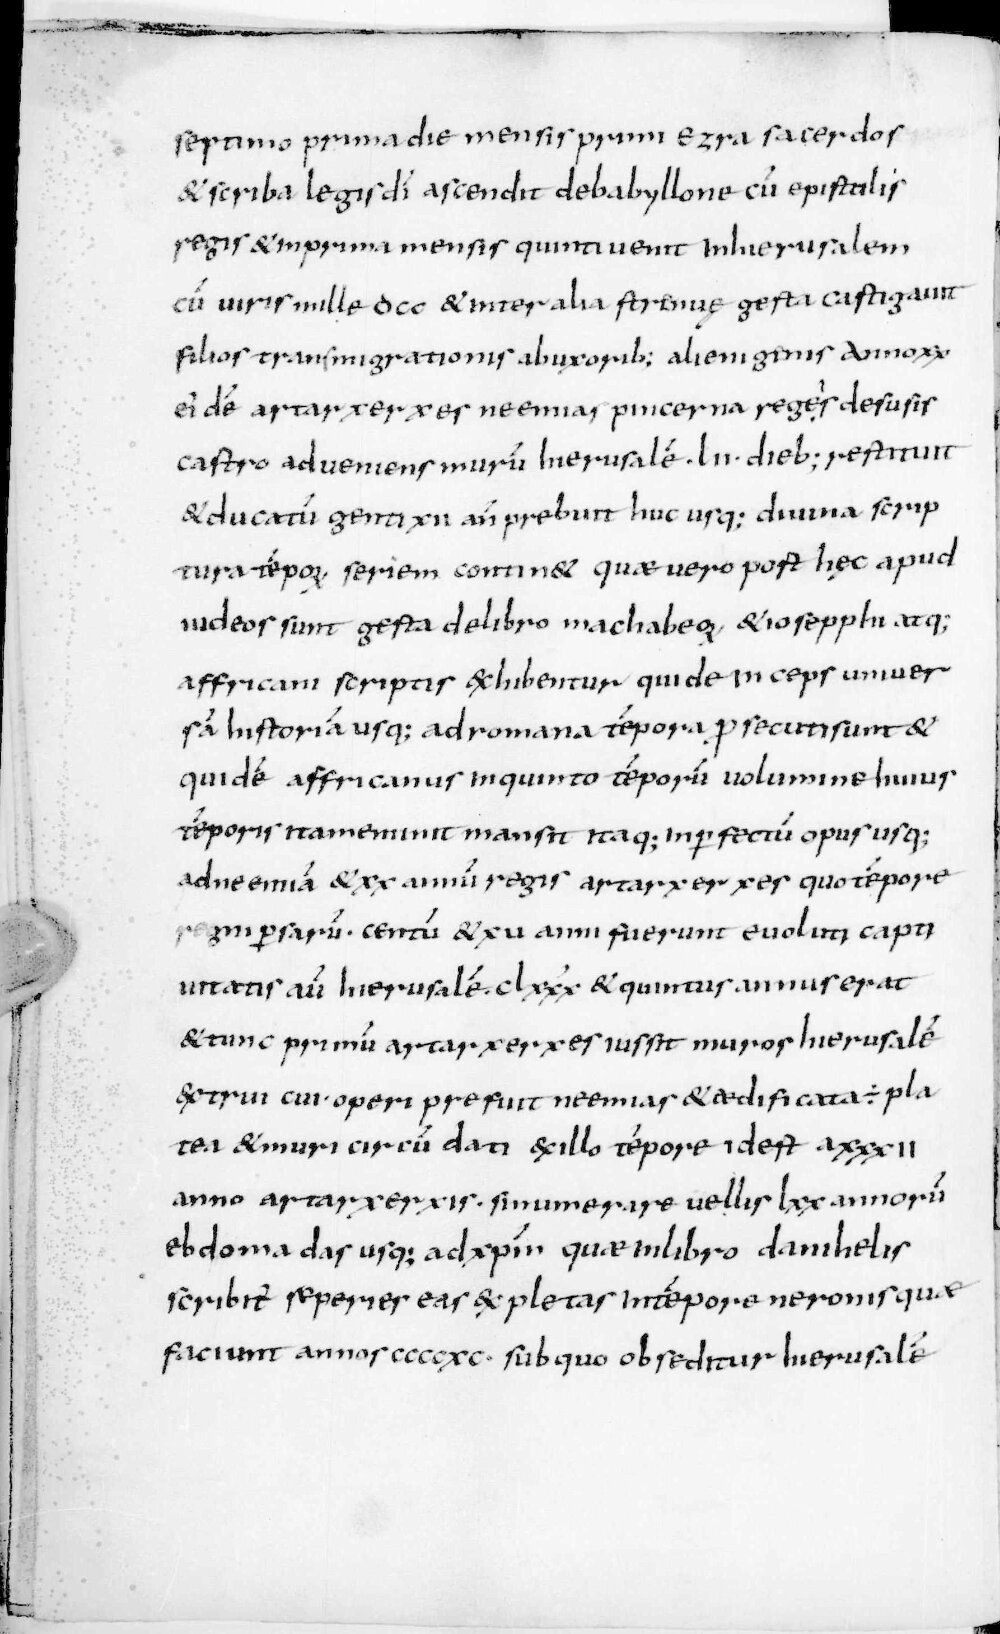 septimo prima die mensis primi ezra sacerdos
& scriba legis dī ascendit debabyllone cū epistilis
regis & inprima mensis quinti uenit inhierusalem
cū uiris mille dcc & inter alia strenuę gesta castigauit
filios transmigrationis abuxorib; alienigenis Anno xx
eidē artarxerxes neemias pincerna regęs desusis
castro adueniens murū hierusalē .lii. dieb; restituit
& ducatū genti xii an̄ prebuit huc usq; diuina scrip
tura tēpoꝝ seriem contin& quæ uero post hęc apud
iudeos sunt gesta delibro machabeoꝝ & iosepphi atq;
affricani scriptis exhibentur qui deinceps uniuer
sā historiā usq; ad romana tēpora ꝓsecuti sunt &
quidē affricanus inquinto tēporū uolumine huius
tēporis itameminit mansit itaq; inꝑfectū opus usq;
adneemiā & xx annū regis artarxerxes quo tēpore
regni ꝑsarū. centū & xv anni fuerunt euoluti capti
uitatis aū hierusalē. clxxx & quintus annus erat
& tunc primū artarxerxes iussit muros hierusalē
extrui cui. operi prefuit neemias & ædificata ÷ pla
tea & muri circū dati exillo tēpore idest axxxii
anno artarxerxis. sinumerare uellis lxx annorū
ebdomadas usq; adxp̄m quæ inlibro danihelis
scribit̄ sēperies eas expletas intēpore neronis quæ
faciunt annos ccccxc. sub quo obseditur hierusalē